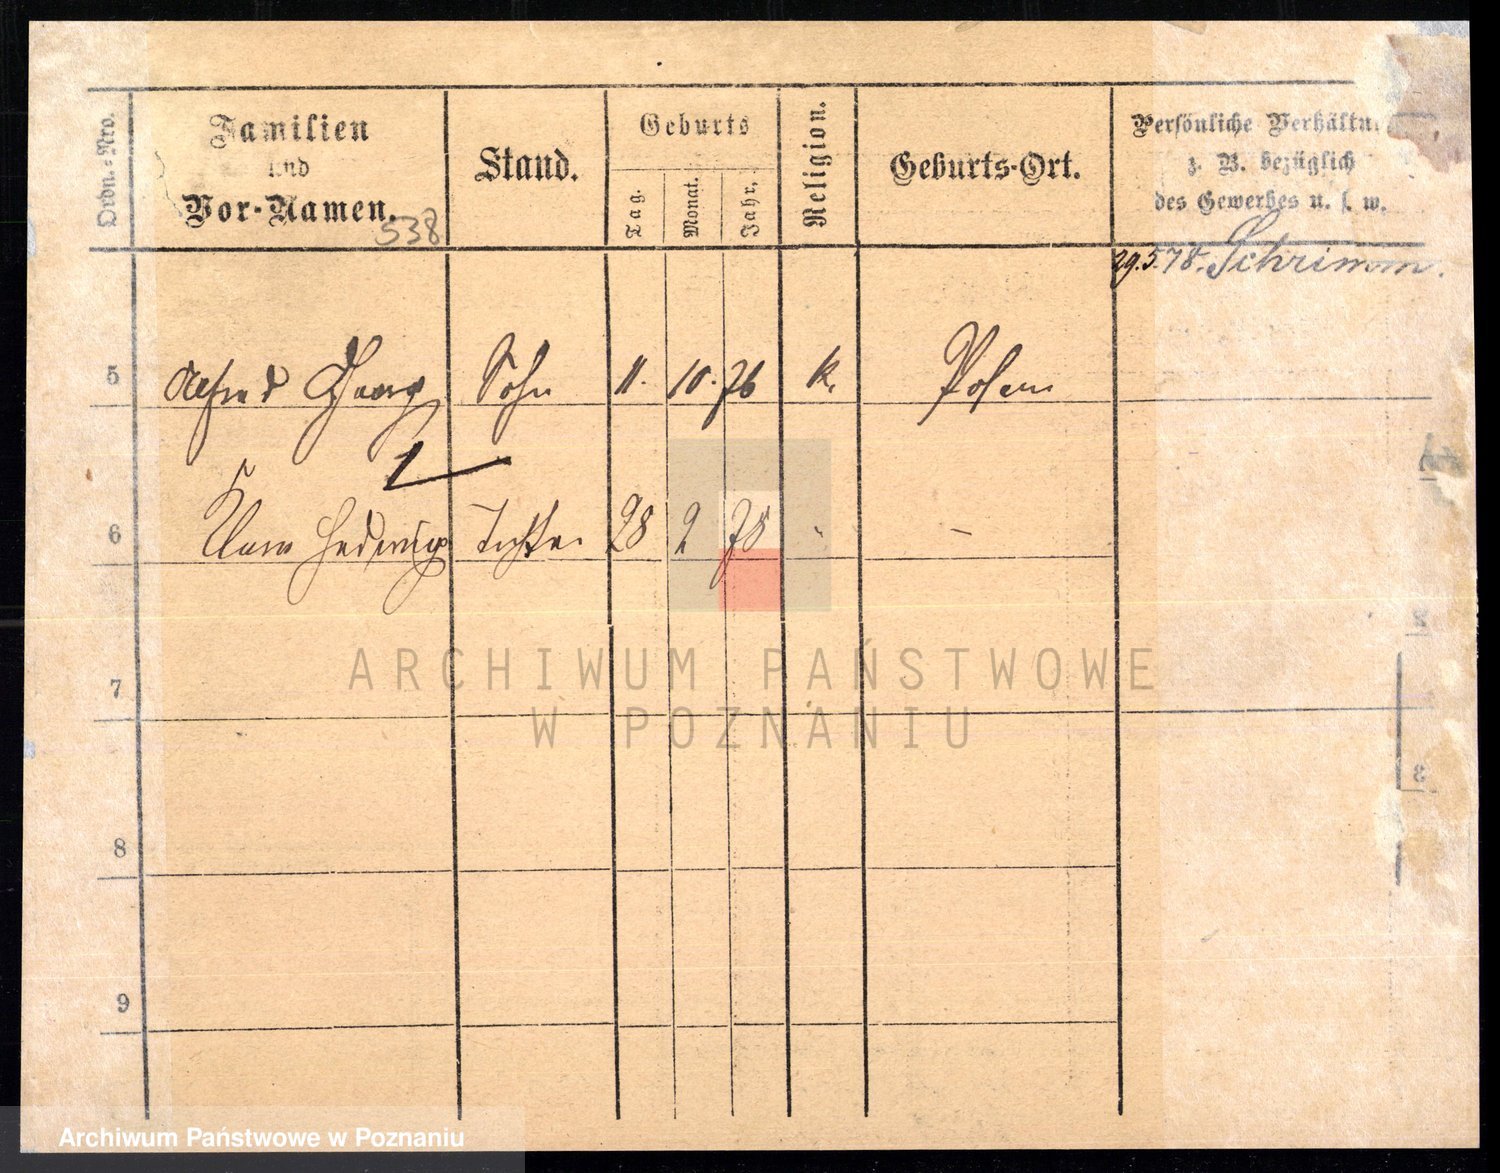 Ordn.-Nro.
Familien
und
Vor-Namen.
538
Stand.
Geburts
Tag.
Monat.
Jahr.
Religion.
Geburts-Ort.
Persönliche Verhältn
z. B. bezüglich
des Gewerbes u. s. w.
29.5.78. Schrimm.
5 Alfred Georg Sohn 11. 10. 76 k. Posen
1
6 Clara Hedwig Tochter 28 2 78 - -
7
8
9
2
3
ARCHIWUM PAŃSTWOWE
W POZNANIU
Archiwum Państwowe w Poznaniu